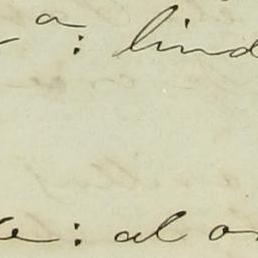 a: lind
e: al o